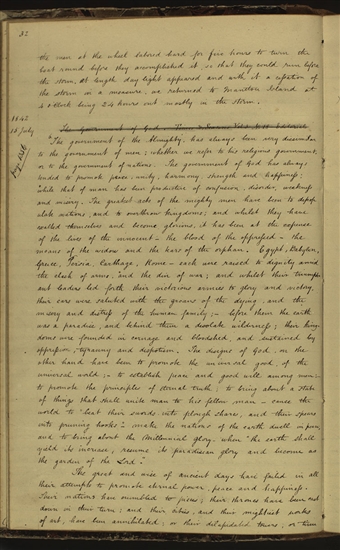 32
the men at the wheel labored hard for five hours to turn the
boat round before they accomplished it so that they could run before
the storm, at length day light appeared and with it a cessation of
the storm in a measure, we returned to Manitou Island at
4 o'clock being 24 hours out mostly in the storm.
1842
15 July
The Government of God
"The government of the Almighty, has always been very dissimilar
to the government of men; whether we refer to his religious government,
or to the government of nations. The government of God has always
tended to promote peace, unity, harmony, strength and happiness;
while that of man has been productive of confusion, disorder, weakness
and misery. The greatest acts of the mighty men have been to depop-
ulate nations, and to overthrow kingdoms; and whilst they have
exalted themselves and become glorious, it has been at the expense
of the lives of the innocent - the blood of the oppressed - the
moans of the widow and the tears of the orphan. Egypt, Babylon,
Greece, Persia, Carthage, Rome - each were raised to dignity amid
the clash of arms, and the din of war; and whilst their triumph-
ant leaders led forth their victorious armies to glory and victory,
their ears were saluted with the groans of the dying, and the
misery and distress of the human family; - before them the earth
was a paradise, and behind them a desolate wilderness; their king-
doms were founded in carnage and bloodshed, and sustained by
oppression, tyranny and despotism. The designs of God, on the
other hand have been to promote the universal good, of the
universal world; - to establish peace and good will among men -
to promote the principles of eternal truth; to bring about a state
of things that shall unite man to his fellow man - cause the
world to "beat their swords into plough shares, and their spears
into pruning hooks" - make the nations of the earth dwell in peace,
and to bring about the Millennial glory - when "the earth shall
yield its increase, resume its paradisean glory and become as
the garden of the Lord."
The great and wise of ancient days have failed in all
their attempts to promote eternal power, peace and happiness.
Their nations have crumbled to pieces; their thrones have been cast
down in their turn; and their cities, and their mightiest works
of art, have been annihilated; or their dilapidated towers, or time